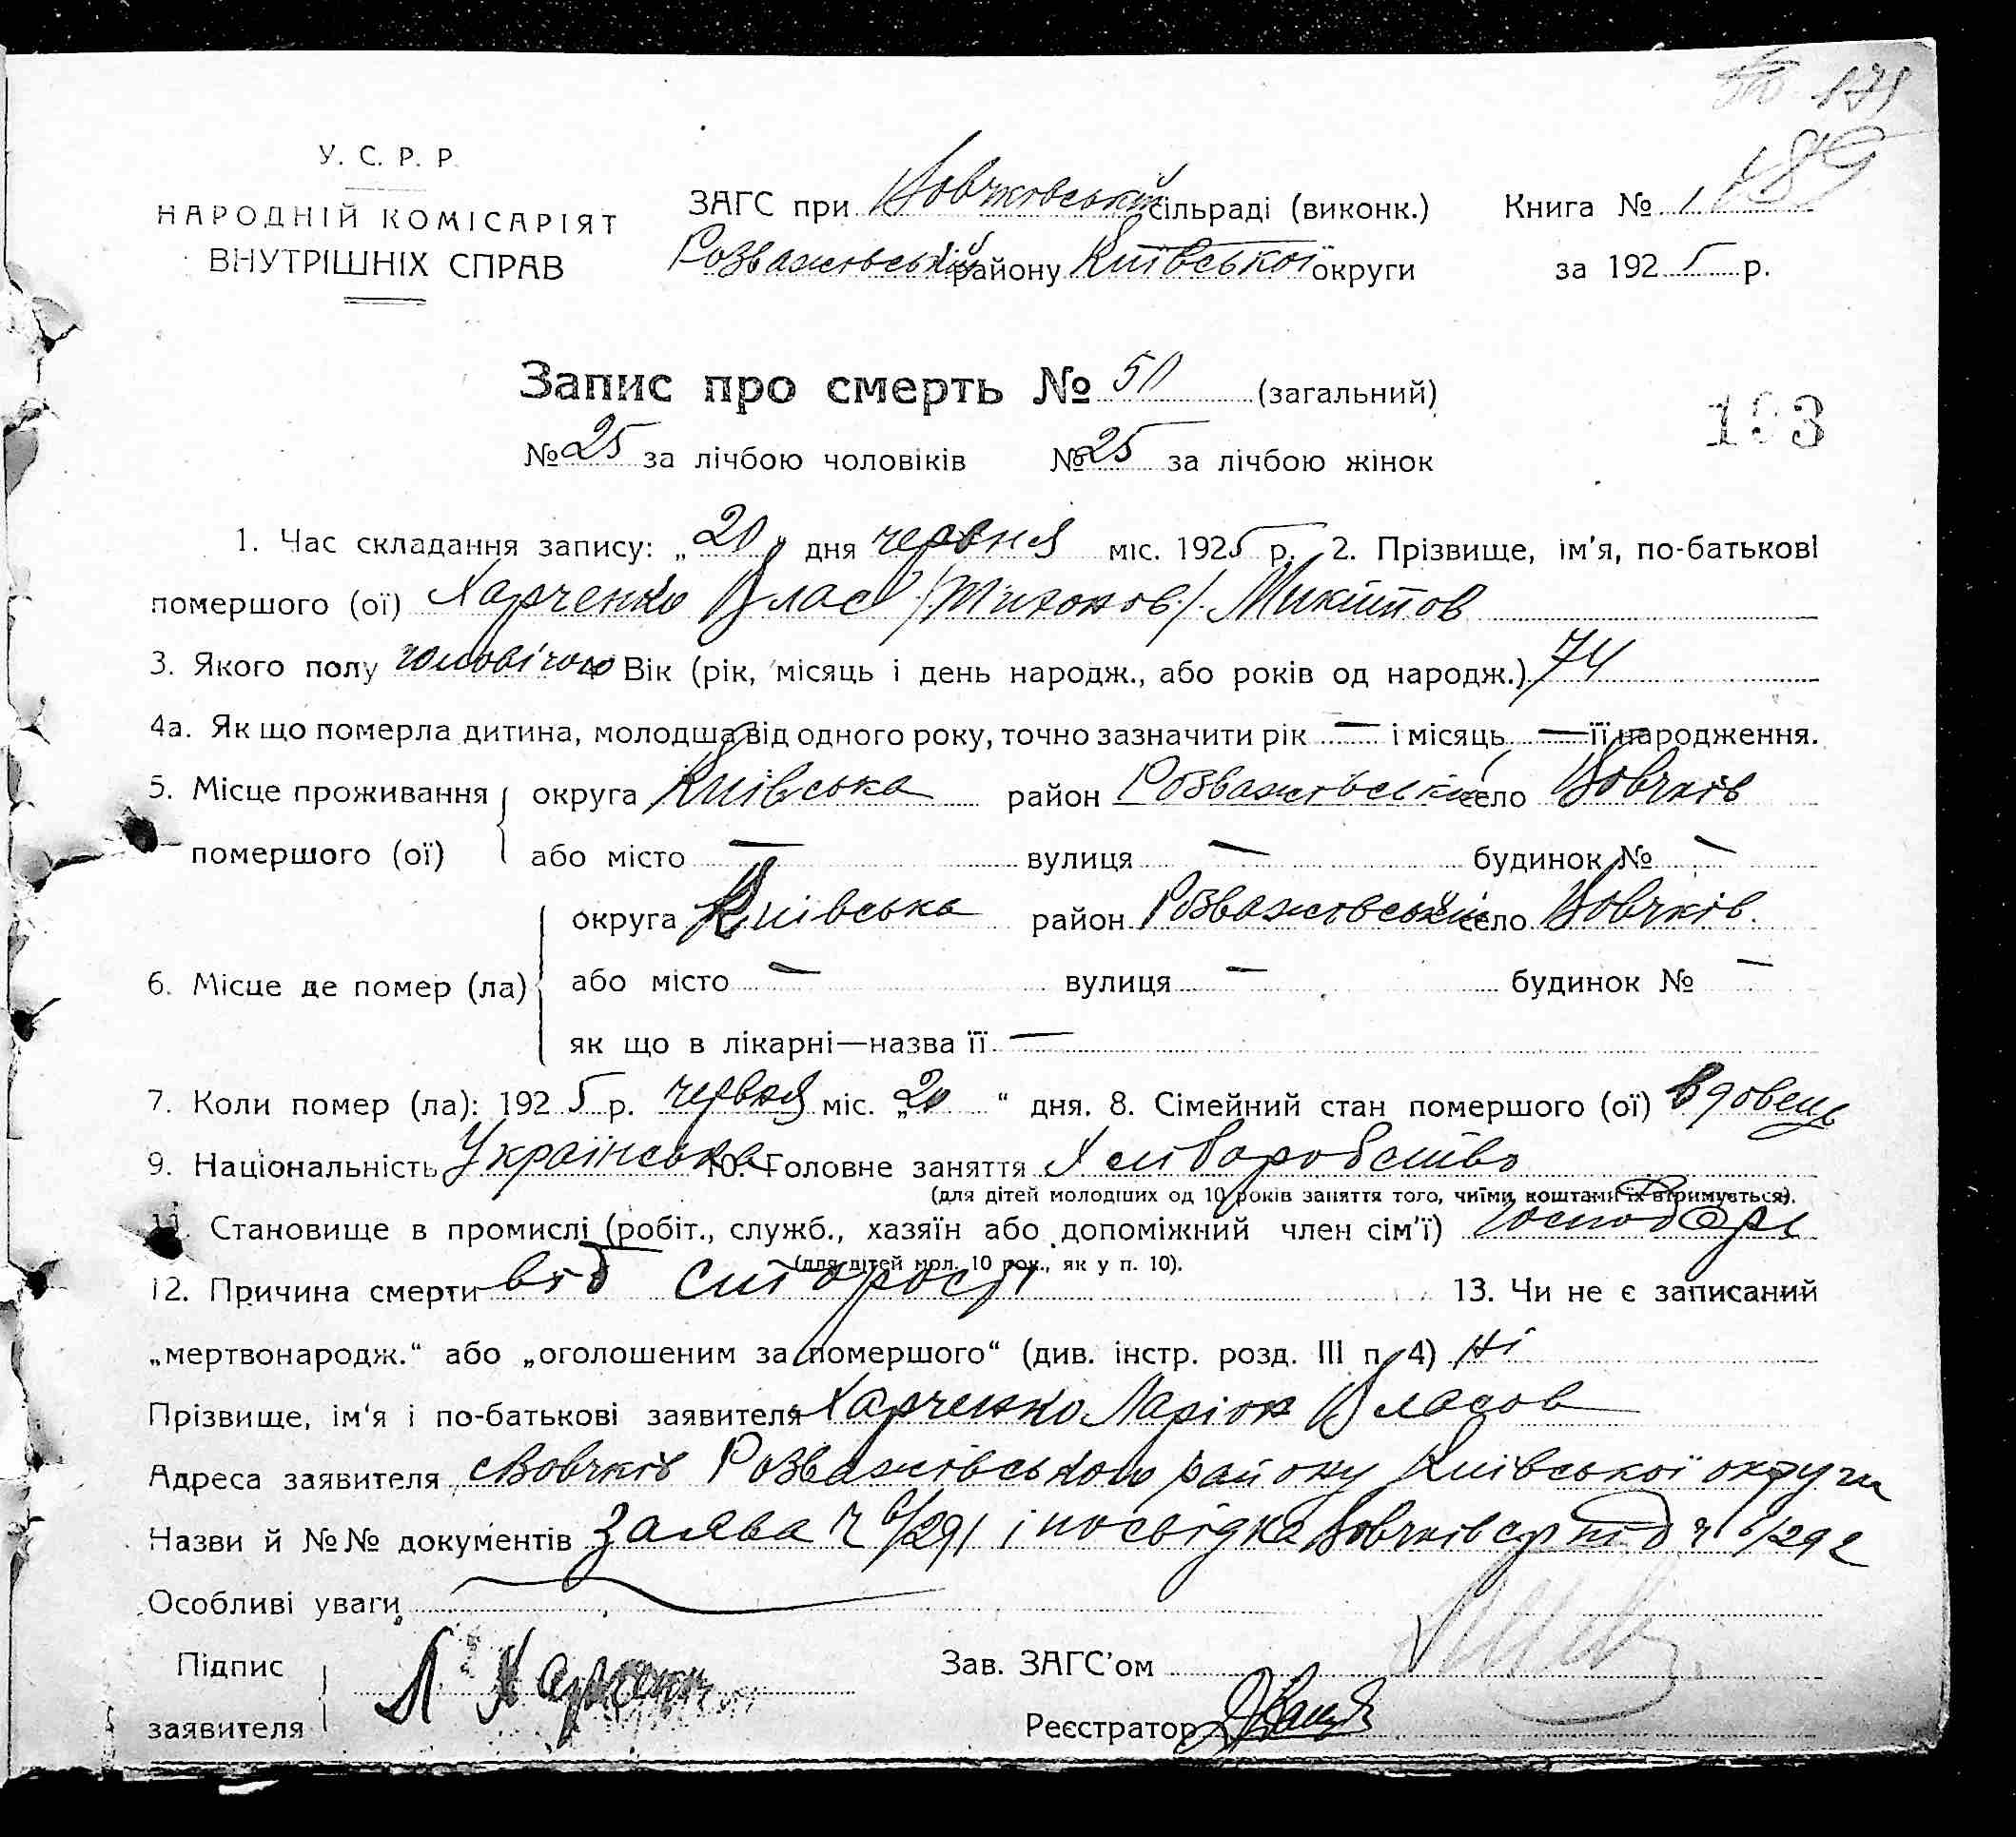 179
189
У. С. Р. Р.
НАРОДНІЙ КОМІСАРІЯТ
ВНУТРІШНІХ СПРАВ
ЗАГС при Вовчковській сільраді (виконк.) Книга № 1
Розважівський району Київської округи за 1925 р.
Запис про смерть № 50 (загальний)
№ 25 за лічбою чоловіків № 25 за лічбою жінок
193
1. Час складання запису: „20" дня червня міс. 1925 р. 2. Прізвище, ім'я, по-батькові
помершого (ої) Харченко Влас /Тихонов/. Микитов
3. Якого полу чоловічого 4 Вік (рік, місяць і день народж., або років од народж.) 74
4а. Як що померла дитина, молодша від одного року, точно зазначити рік — і місяць — її народження.
5. Місце проживання помершого (ої) округа Київська район Розважівський село Вовчків
або місто — вулиця — будинок № —
6. Місце де помер (ла) округа Київська район Розважовський село Вовчків.
або місто — вулиця — будинок № —
як що в лікарні—назва її —
7. Коли помер (ла): 1925 р. червня міс. „20" дня. 8. Сімейний стан помершого (ої) вдовець
9. Національність Українська 10. Головне заняття Хліборобство
(для дітей молодших од 10 років заняття того, чиїми коштами їх втримується).
11. Становище в промислі (робіт., служб., хазяїн або допоміжний член сім'ї) господарь
(для дітей мол. 10 рок., як у п. 10).
12. Причина смерти від старості 13. Чи не є записаний
„мертвонародж." або „оголошеним за помершого" (див. інстр. розд. III п. 4) Ні
Прізвище, ім'я і по-батькові заявителя Харченко Ларіон Власов
Адреса заявителя с Вовчків Розважівського району Київської округи
Назви й №№ документів Заява ч 6/291 і посвідка Вовчків с/р під ч 6/292
Особливі уваги
Підпис заявителя Л Харченко
Зав. ЗАГС'ом
Реєстратор